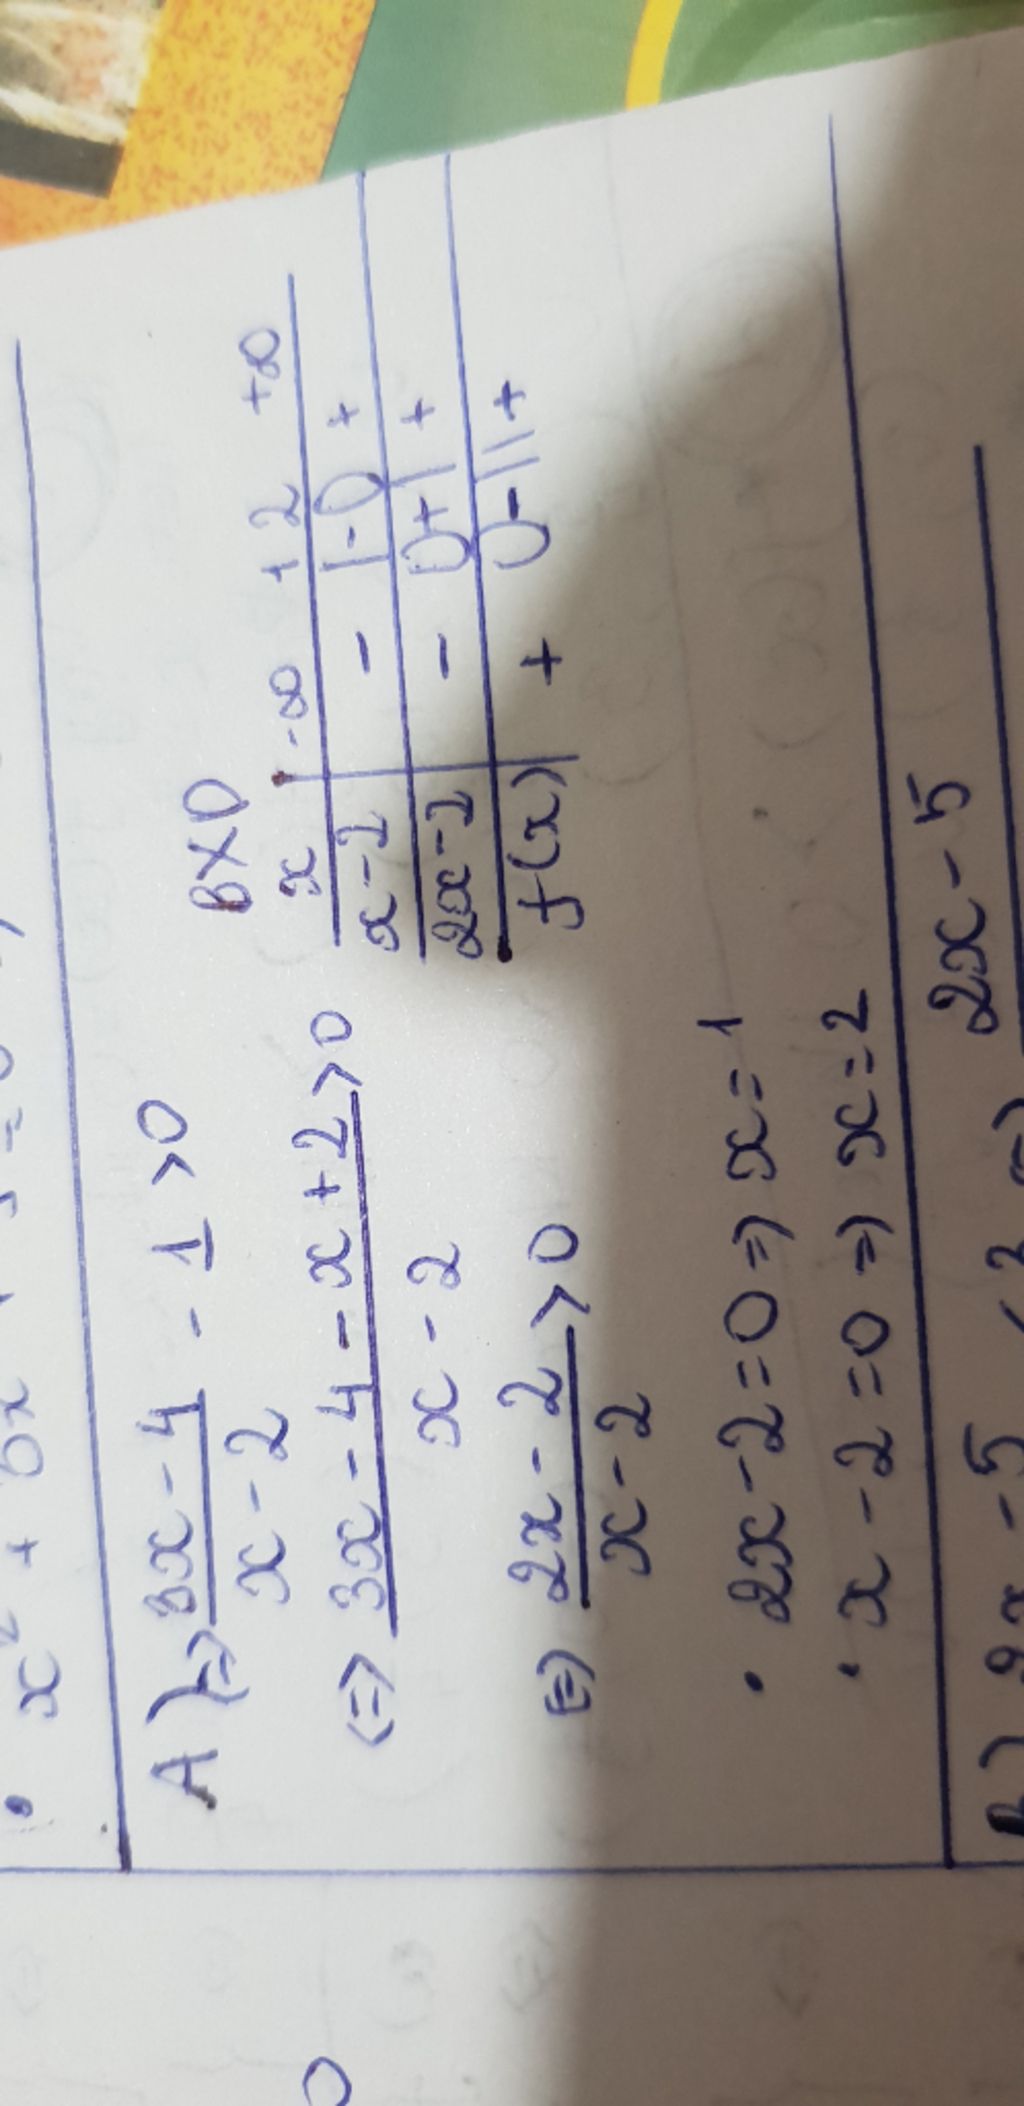 x² + 5x
A) ⇔ (3x - 4)/(x - 2) - 1 > 0
⇔ (3x - 4 - x + 2)/(x - 2) > 0
⇔ (2x - 2)/(x - 2) > 0
• 2x - 2 = 0 ⇒ x = 1
• x - 2 = 0 ⇒ x = 2
BXD
x | -∞ 1 2 +∞
x - 2 | - | - 0 +
2x - 2 | - 0 + | +
f(x) | + 0 - || +
2x - 5